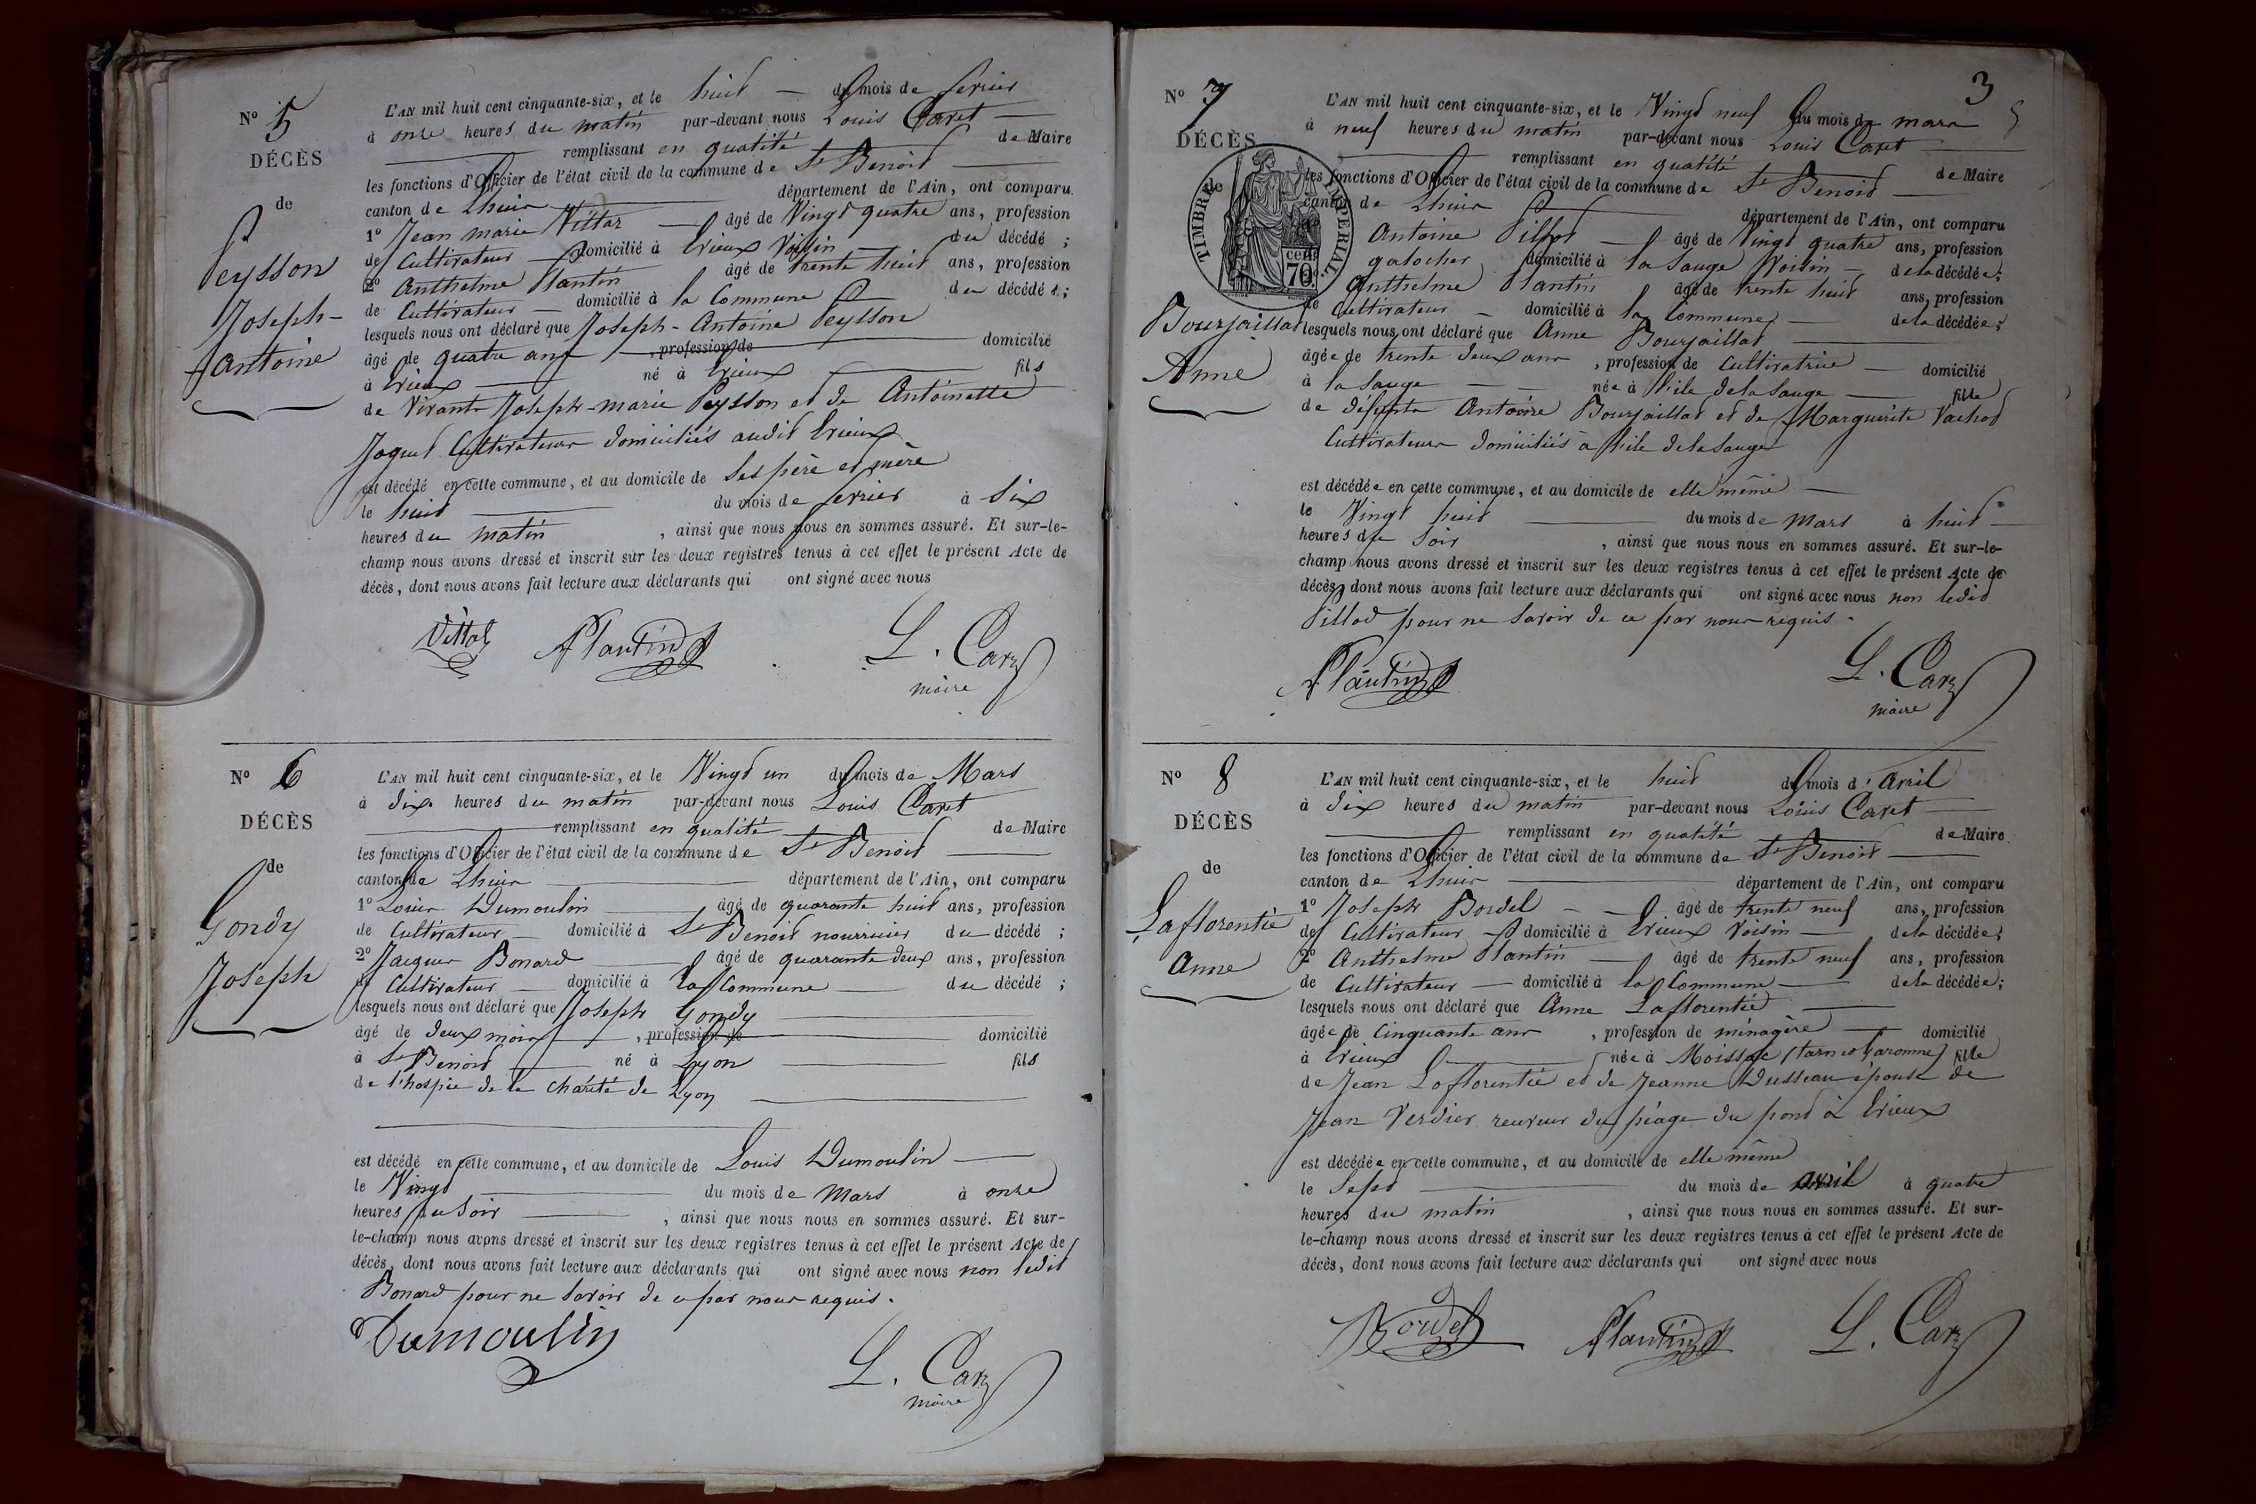 N° 5
DÉCÈS
de
Peysson
Joseph-
Antoine
L'AN mil huit cent cinquante-six, et le huit du mois de fevrier
à onze heures du matin par-devant nous Louis Carret
remplissant en qualité de Maire
les fonctions d'Officier de l'état civil de la commune de St Benoit
canton de Lhuis département de l'Ain, ont comparu
1° Jean marie Vittoz âgé de Vingt quatre ans, profession
de Cultivateur domicilié à Evieux Voisin du décédé ;
2° Anthelme Plantin âgé de trente huit ans, profession
de Cultivateur domicilié à la Commune du décédé ;
lesquels nous ont déclaré que Joseph-Antoine Peysson
âgé de quatre ans , profession de domicilié
à Evieux né à Evieux fils
de Vivants Joseph-marie Peysson et de Antoinette
Joguet Cultivateurs domiciliés audit Evieux
est décédé en cette commune, et au domicile de Ses père et mère
le huit du mois de fevrier à Six
heures du matin , ainsi que nous nous en sommes assuré. Et sur-le-
champ nous avons dressé et inscrit sur les deux registres tenus à cet effet le présent Acte de
décès, dont nous avons fait lecture aux déclarants qui ont signé avec nous
Vittoz APlantin L. Carret
maire
N° 6
DÉCÈS
de
Gondy
Joseph
L'AN mil huit cent cinquante-six, et le Vingt un du mois de Mars
à dix heures du matin par-devant nous Louis Carret
remplissant en qualité de Maire
les fonctions d'Officier de l'état civil de la commune de St Benoit
canton de Lhuis département de l'Ain, ont comparu
1° Louis Dumoulin âgé de quarante huit ans, profession
de Cultivateur domicilié à St Benoit nourricier du décédé ;
2° Jacques Bonard âgé de quarante deux ans, profession
de Cultivateur domicilié à La Commune du décédé ;
lesquels nous ont déclaré que Joseph Gondy
âgé de deux mois , profession de domicilié
à St Benoit né à Lyon fils
de l'hospice de la Charité de Lyon
est décédé en cette commune, et au domicile de Louis Dumoulin
le Vingt du mois de Mars à onze
heures du Soir , ainsi que nous nous en sommes assuré. Et sur-
le-champ nous avons dressé et inscrit sur les deux registres tenus à cet effet le présent Acte de
décès, dont nous avons fait lecture aux déclarants qui ont signé avec nous non ledit
Bonard pour ne savoir de ce par nous requis.
Dumoulin L. Carret
maire
3
N° 7
DÉCÈS
de
TIMBRE IMPERIAL
70 cent.
Bourjaillat
Anne
L'AN mil huit cent cinquante-six, et le Vingt neuf du mois de mars
à neuf heures du matin par-devant nous Louis Carret
remplissant en qualité de Maire
les fonctions d'Officier de l'état civil de la commune de St Benoit
canton de Lhuis département de l'Ain, ont comparu
Antoine Pillod âgé de Vingt quatre ans, profession
galocher domicilié à la Sauge Voisin de la décédée ;
Anthelme Plantin âgé de trente huit ans, profession
de Cultivateur domicilié à la Commune de la décédée ;
lesquels nous ont déclaré que Anne Bourjaillat
âgée de trente deux ans , profession de Cultivatrice domicilié
à la Sauge née à l'ile de la Sauge fille
de défunts Antoine Bourjaillat et de Marguerite Vachod
Cultivateurs domiciliés à l'ile de la Sauge
est décédée en cette commune, et au domicile de elle même
le Vingt huit du mois de Mars à huit
heures du Soir , ainsi que nous nous en sommes assuré. Et sur-le-
champ nous avons dressé et inscrit sur les deux registres tenus à cet effet le présent Acte de
décès, dont nous avons fait lecture aux déclarants qui ont signé avec nous non ledit
Pillod pour ne savoir de ce par nous requis.
APlantin L. Carret
maire
N° 8
DÉCÈS
de
Laflorentie
Anne
L'AN mil huit cent cinquante-six, et le huit du mois d'Avril
à dix heures du matin par-devant nous Louis Carret
remplissant en qualité de Maire
les fonctions d'Officier de l'état civil de la commune de St Benoit
canton de Lhuis département de l'Ain, ont comparu
1° Joseph Bordel âgé de trente neuf ans, profession
de Cultivateur domicilié à Evieux Voisin de la décédée ;
2° Anthelme Plantin âgé de trente neuf ans, profession
de Cultivateur domicilié à la Commune de la décédée ;
lesquels nous ont déclaré que Anne Laflorentie
âgée de Cinquante ans , profession de ménagère domicilié
à Evieux née à Moissac (tarn et Garonne) fille
de Jean Laflorentie et de Jeanne Dusseau épouse de
Jean Verdier receveur du péage du pont à Evieux
est décédée en cette commune, et au domicile de elle même
le Sept du mois de avril à quatre
heures du matin , ainsi que nous nous en sommes assuré. Et sur-
le-champ nous avons dressé et inscrit sur les deux registres tenus à cet effet le présent Acte de
décès, dont nous avons fait lecture aux déclarants qui ont signé avec nous
Bordel APlantin L. Carret